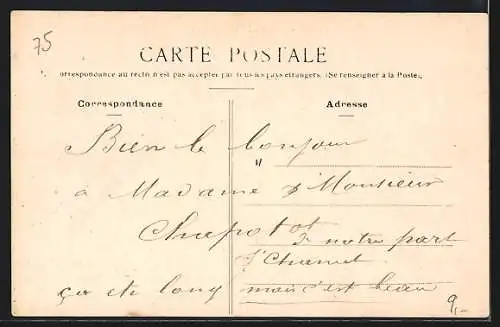 75
CARTE POSTALE
orrespondance au recto n'est pas acceptée par tous les pays étrangers. (Se renseigner à la Poste.)
Correspondance
Adresse
Bien le bonjour
à Madame & Monsieur
Chapotot
de notre part
ça est long
mais c'est beau
9,-